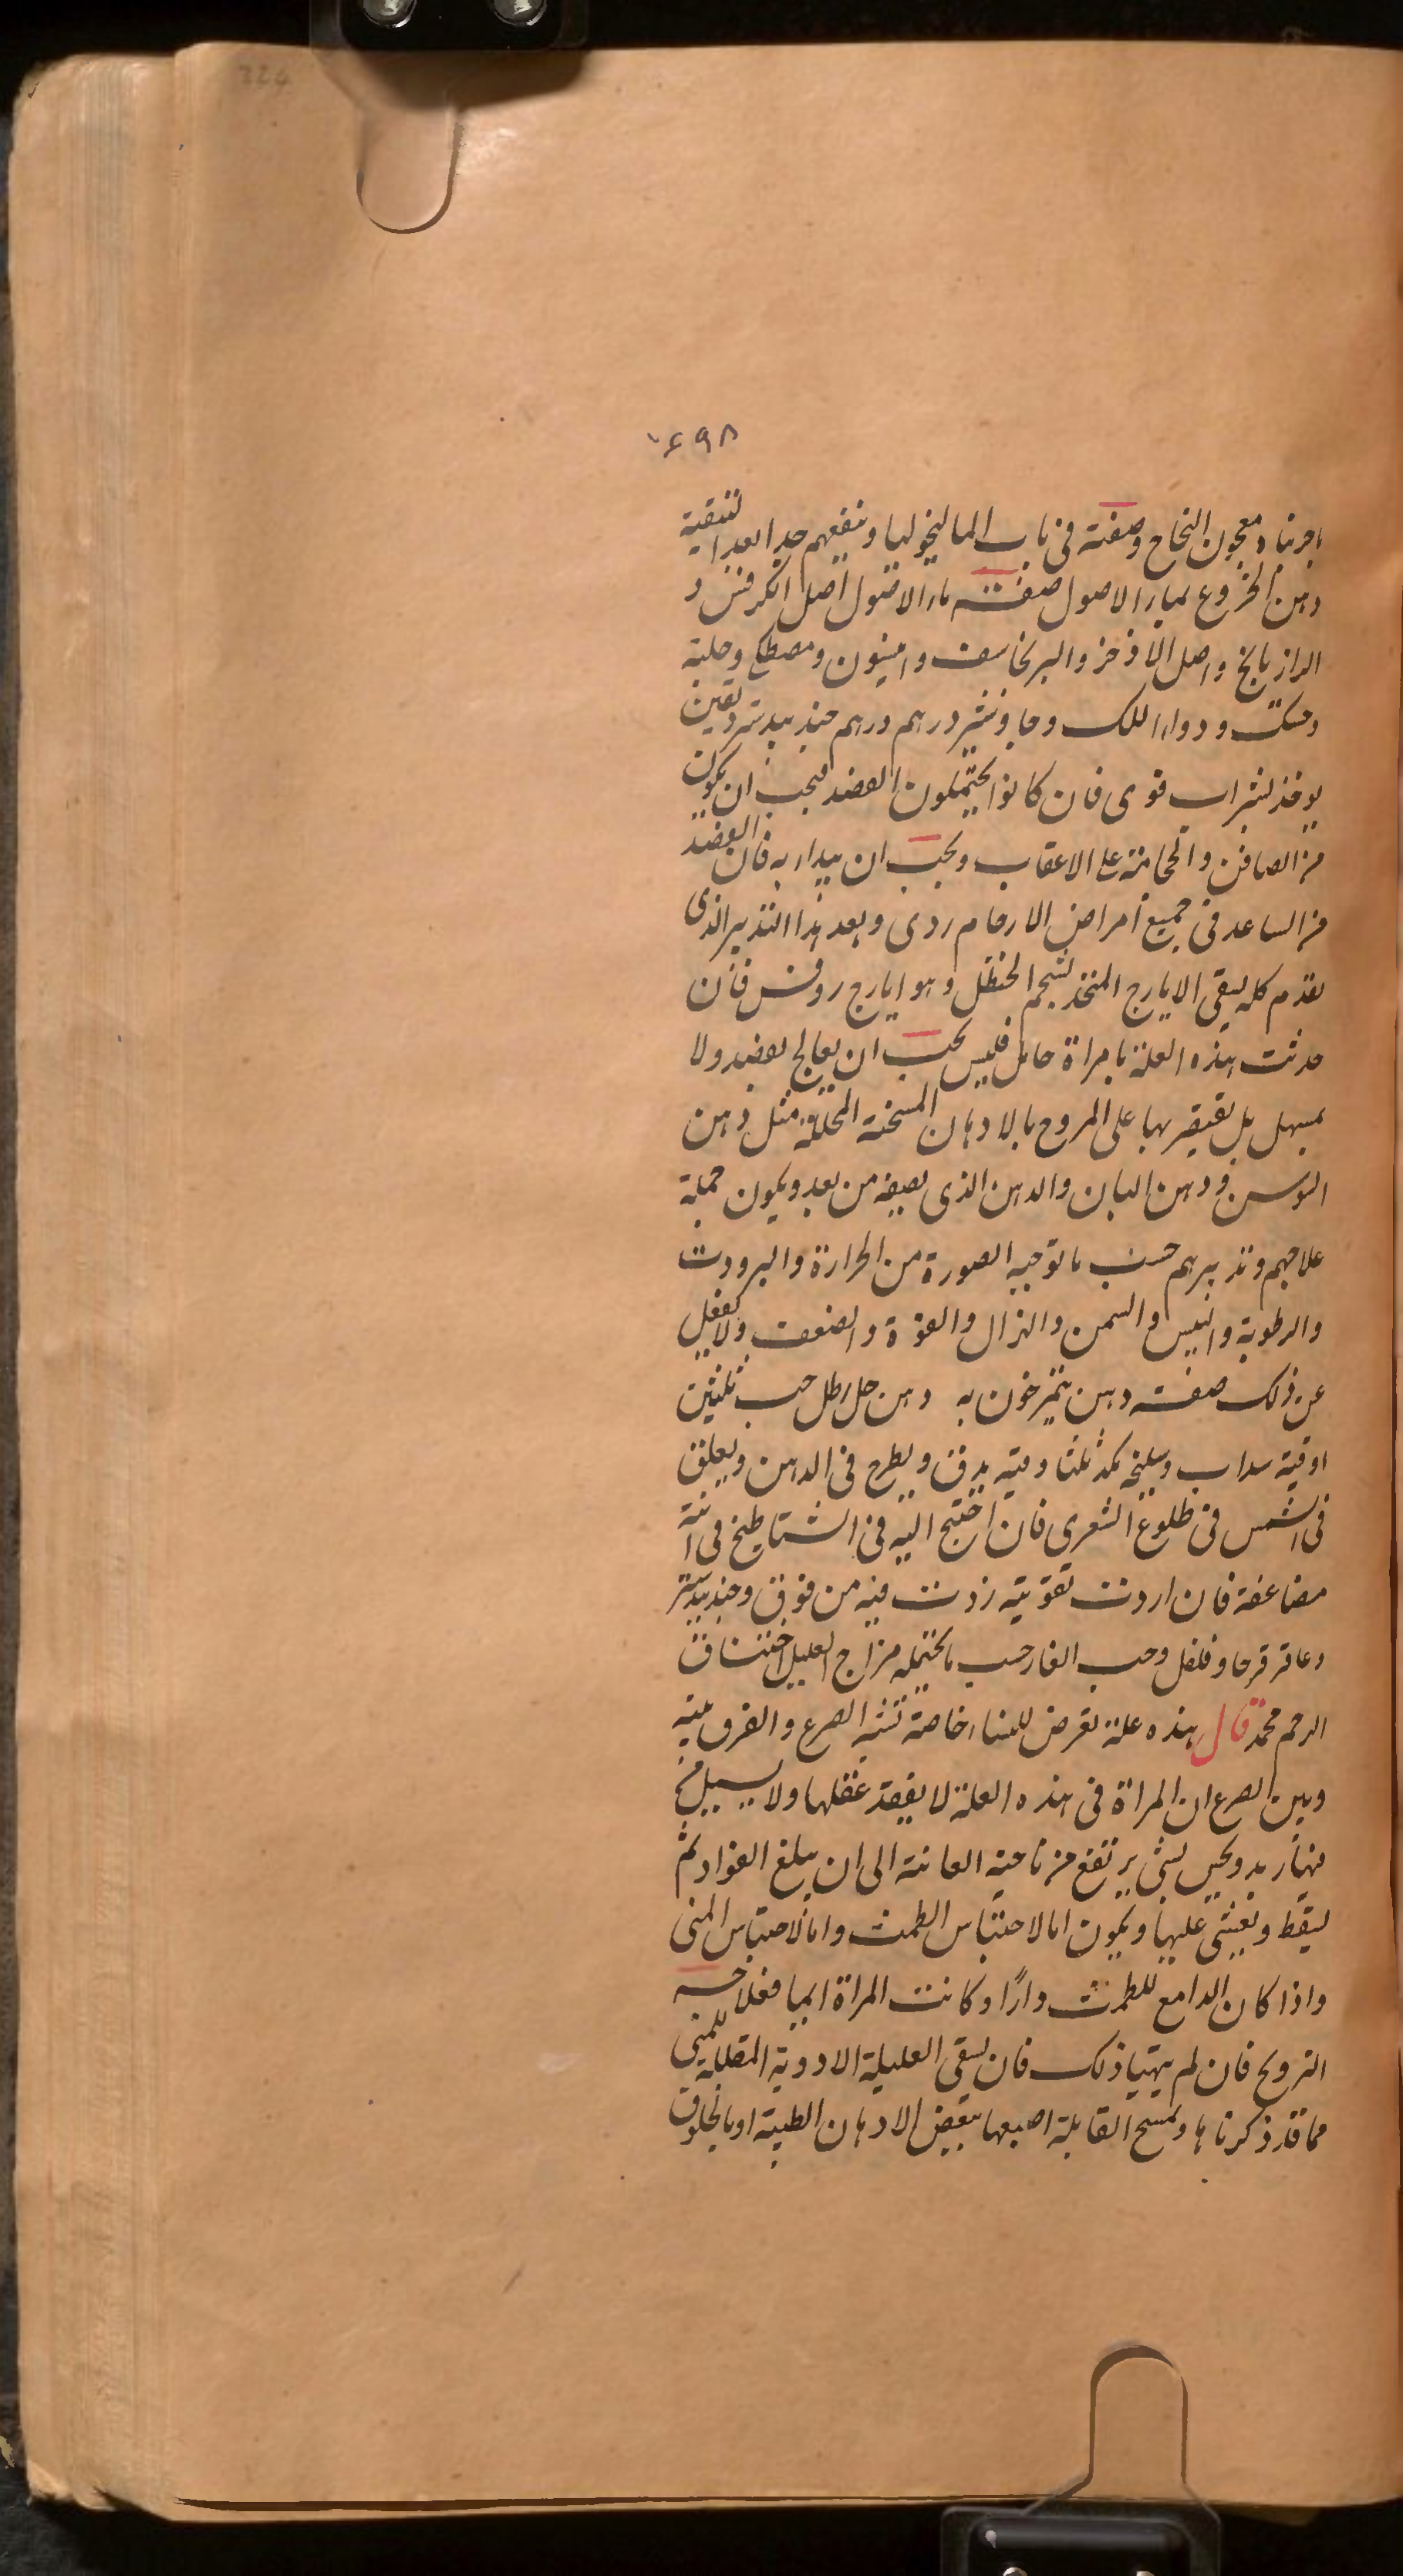 324
۶۹۸
باجربنا ومعجون النجاح وصفته فى باب الماليخوليا وينفعهم جدا بعد التنقية
دهن الخروع بماء الاصول صفت ماء الاصول اصل الكرفس و
الرازيانج واصل الاذخر والبرنجاسف وانيسون ومصطكى وحلبة
ودواء اللك وجاوشير درهم درهم جندبيدستر دانقين
يوخذ بشراب قوى فان كانوا يحتملون الفصد فيجب ان يكون
من الصافن والحجامة على الاعقاب ويجب ان يبداء به فان الفصد
من الساعد فى جميع امراض الارحام ردى وبعد هذا التدبير الذى
تقدم كله يسقى الايارج المتخذ بشحم الحنظل وهو ايارج روفس فان
حدثت هذه العلة بامراة حامل فليس يجب ان يعالج بفصد ولا
بمسهل بل يقتصر بها على المروخ بالادهان المسخنة المحللة مثل دهن
السوسن ودهن البان والدهن الذى نصفه من بعد ويكون جملة
علاجهم وتدبيرهم حسب ما توجبه الصورة من الحرارة والبرودت
والرطوبة واليبس والسمن والهزال والقوة والضعف ولا تغفل
عن ذلك صفت دهن يتمرخون به دهن حل رطل حب ثلثين
اوقية سداب وسليخه ثلثا وقيه يدق ويطرح فى الدهن ويعلق
فى الشمس فى طلوع الشعرى فان احتيج اليه فى الشتا طبخ فى انية
مضاعفة فان اردت تقويته زدت فيه من فوق وجندبيدستر
وعاقرقرحا وفلفل وحب الغار حسب ما يحتمله مزاج العليل اختناق
الرحم محمد قال هذه علة تعرض للنساء خاصة تشبه الصرع والفرق بينه
وبين الصرع ان المراة فى هذه العلة لا يفقد عقلها ولا يسيل من
فيها زبد ويحس بشى يرتفع من ناحية العانة الى ان يبلغ الفواد ثم
يسقط ويغشى عليها ويكون اما لاحتباس الطمث واما لاحتباس المنى
واذا كان الدامع للطمث دارًا وكانت المراة ايما فعلاجه
التزويج فان لم يتهيا ذلك فان يسقى العليلة الادوية المقللة للمنى
مما قد ذكرناها وتمسح القابلة اصبعها ببعض الادهان الطيبة او بالخلوق